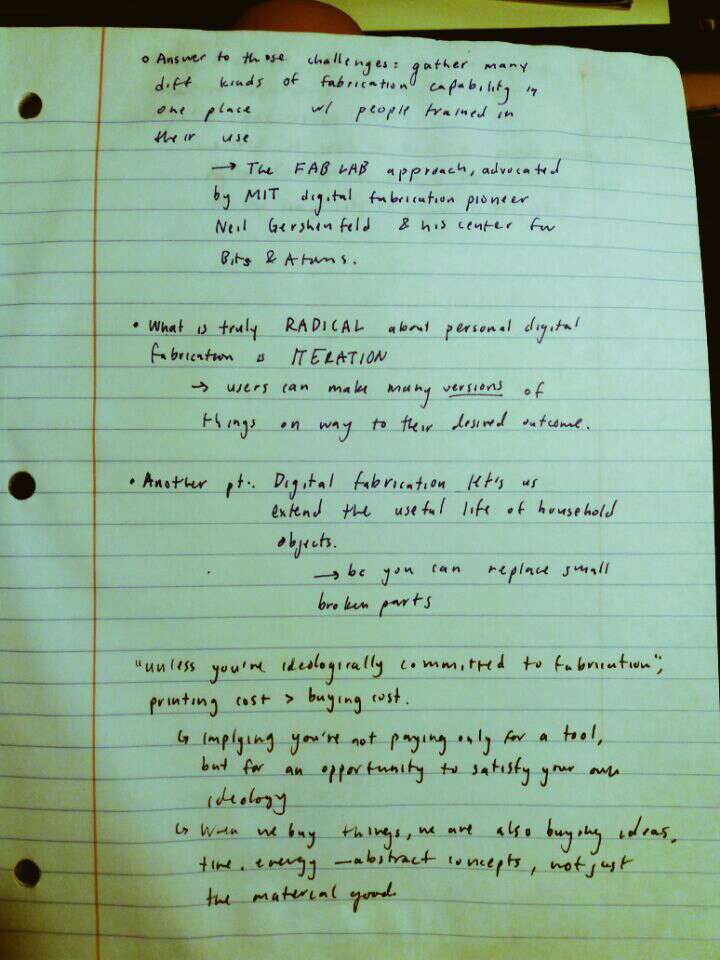 o Answer to those challenges: gather many
diff kinds of fabrication capability in
one place w/ people trained in
their use
→ The FAB LAB approach, advocated
by MIT digital fabrication pioneer
Neil Gershenfeld & his center for
Bits & Atoms.
• What is truly RADICAL about personal digital
fabrication is ITERATION
→ users can make many versions of
things on way to their desired outcome.
• Another pt.. Digital fabrication let's us
extend the useful life of household
objects.
→ bc you can replace small
broken parts
"unless you're ideologically committed to fabrication",
printing cost > buying cost.
↳ implying you're not paying only for a tool,
but for an opportunity to satisfy your own
ideology
↳ When we buy things, we are also buying ideas,
time, energy —abstract concepts, not just
the material good.